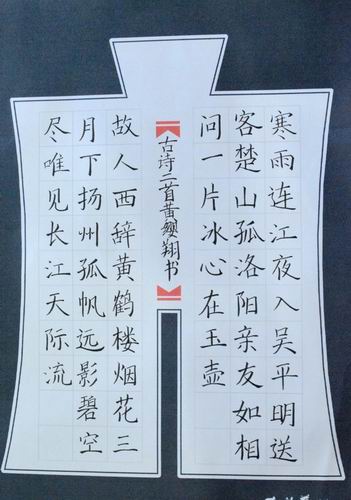 寒雨连江夜入吴平明送
客楚山孤洛阳亲友如相
问一片冰心在玉壶
古诗二首黄缨翔书
故人西辞黄鹤楼烟花三
月下扬州孤帆远影碧空
尽唯见长江天际流